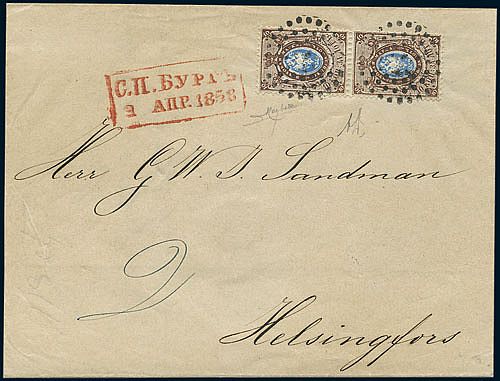 С.П.БУРГЪ
2 АПР.1858
Herr G W J. Sandman
Helsingfors